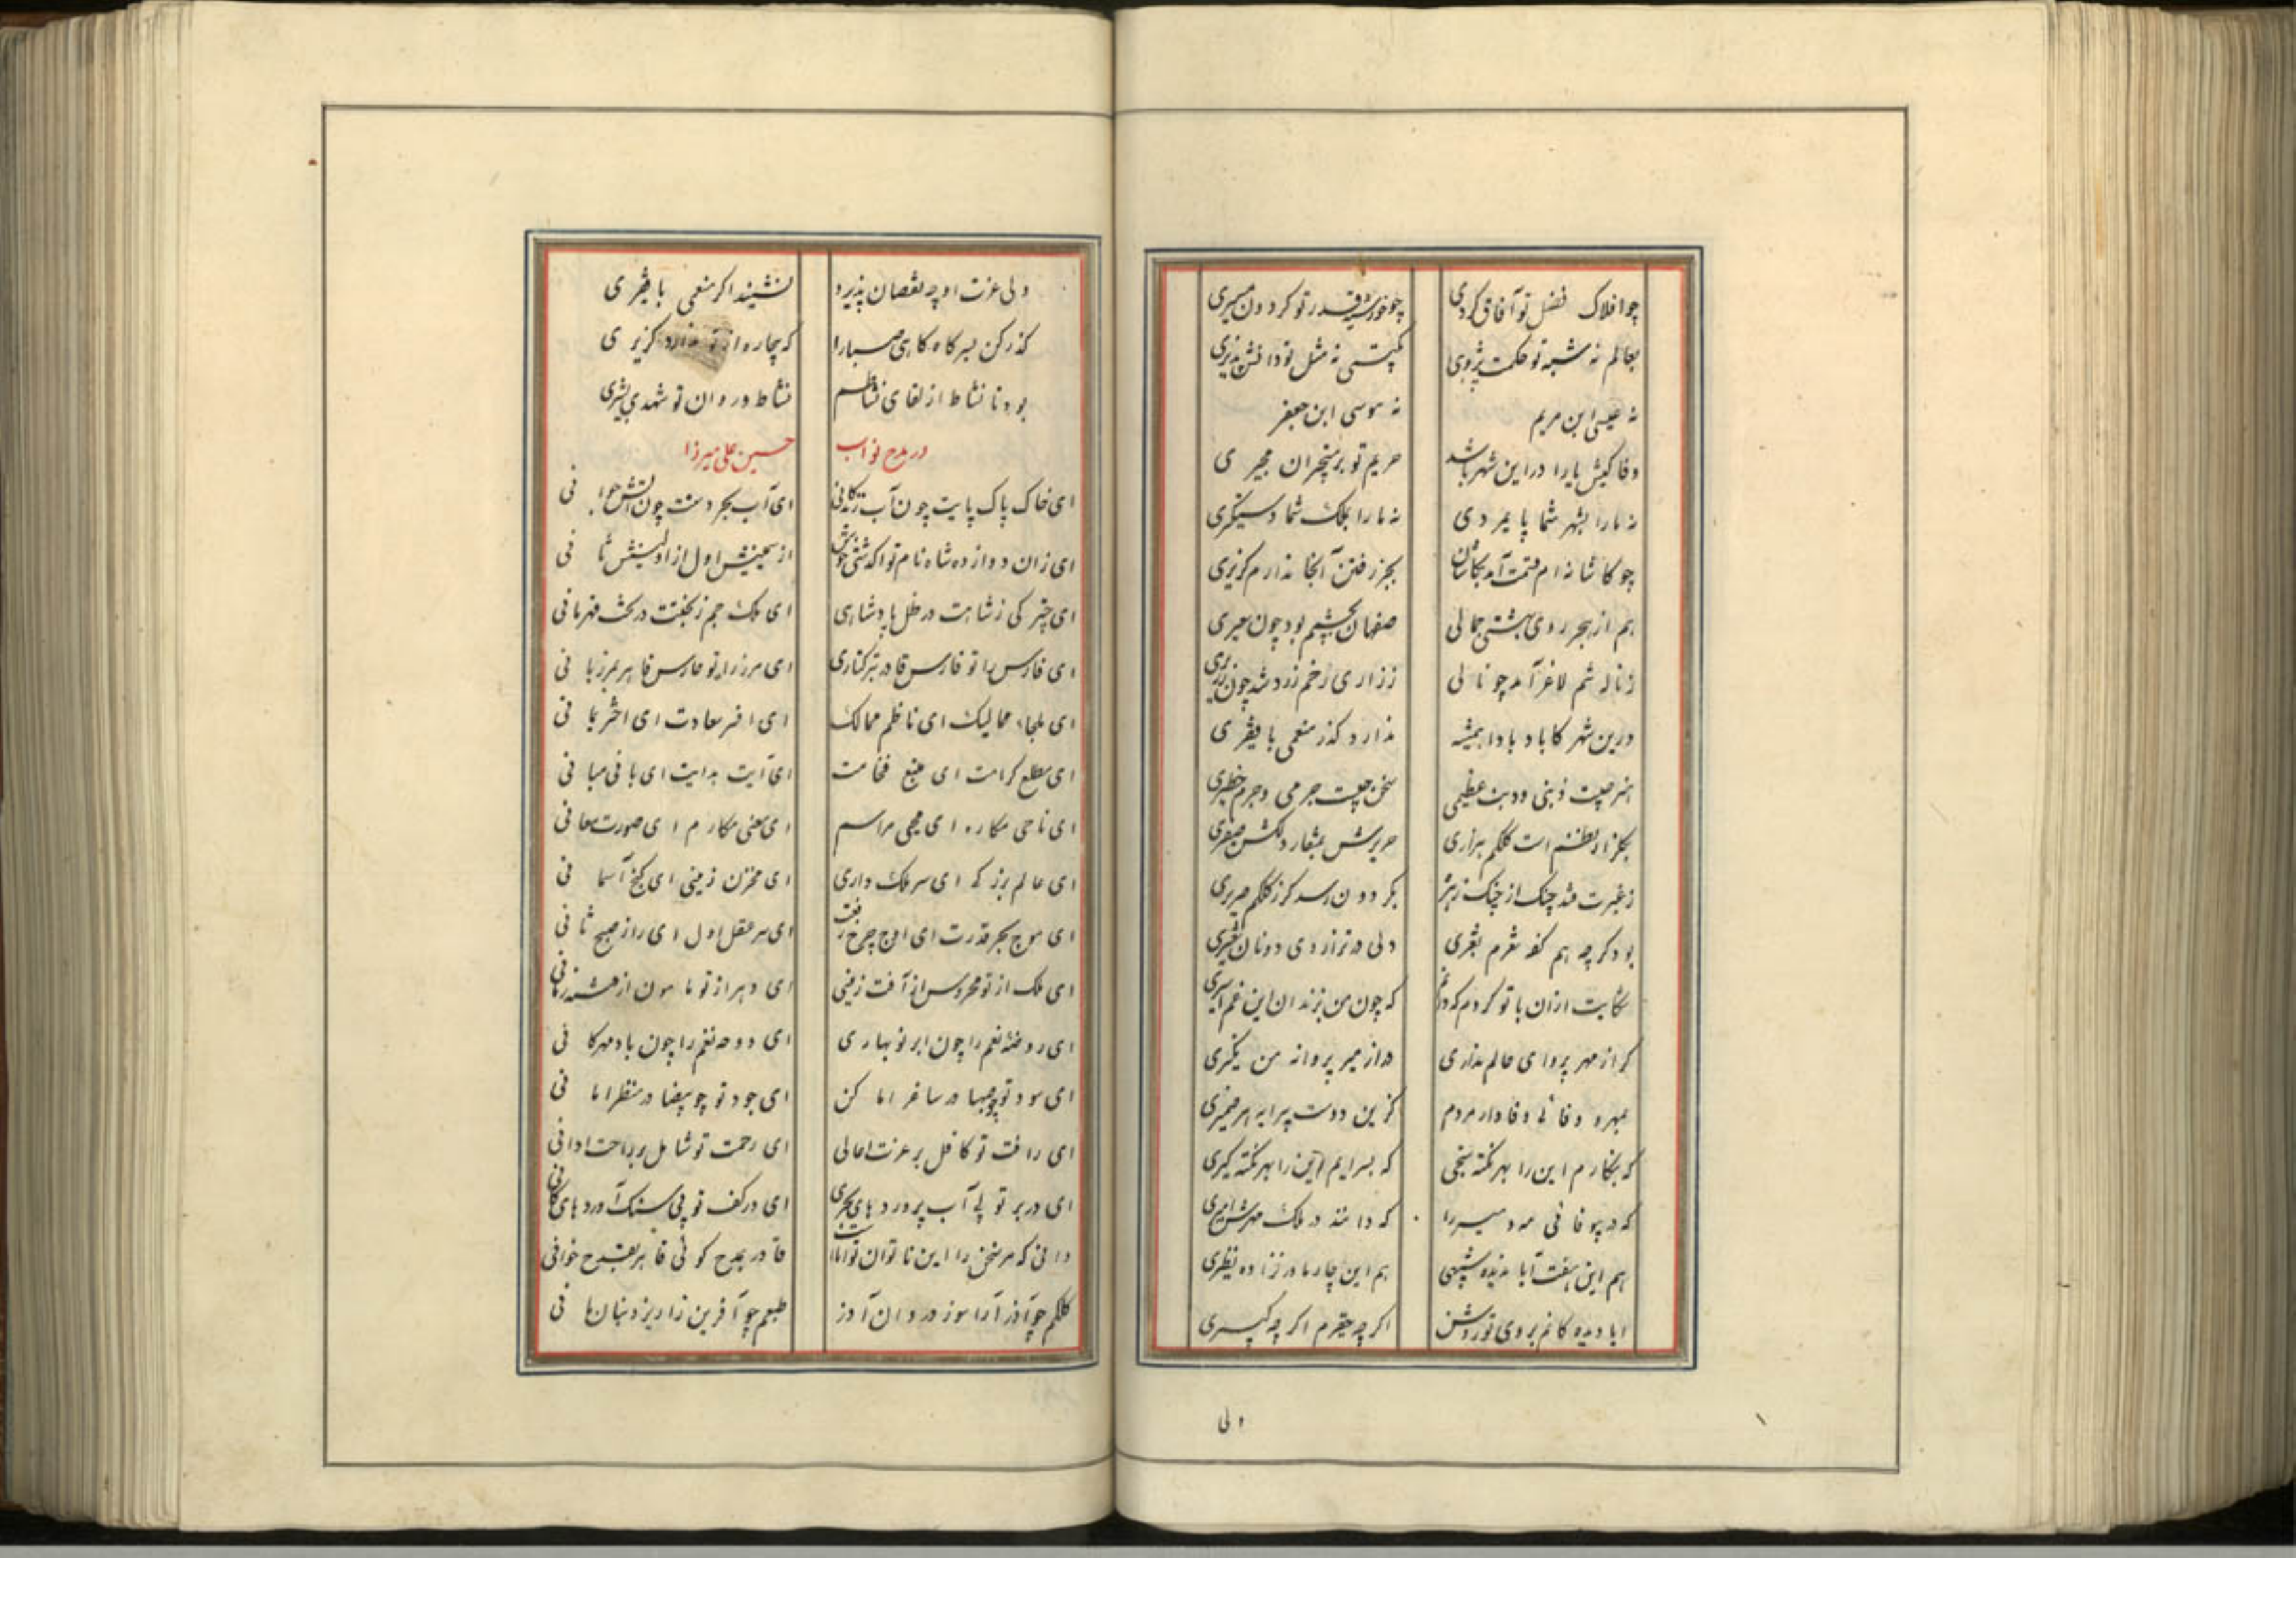 چو افلاک فضل تو آفاق کردی چو خورشید قدر تو کردون مسیری
بعالم نه شبه تو حکمت پژوهی بکیتی نه مثل تو دانش پذیری
نه عیسی ابن مریم نه موسی ابن جعفر
وفا کیش یارا در این شهر باشد حریم تو بر مستجیران مجیری
نه ما را بشهر شما پایمردی نه ما را بملک شما دستگیری
چو کاشانه ام قسمت آمد بکاشان بجز رفتن آنجا ندارم کزیری
هم از هجر روی بهشتی جمالی صفاهان بچشمم بود چون سعیری
ز ناله تنم لاغر آمد چو نالی ز زاری رخم زرد شد چون زریری
درین شهر کاباد بادا همیشه ندارد کذر منعمی با فقیری
هنر چیست ذنبی و ذنب عظیمی سخن چیست جرمی و جرم خطیری
بکلزار نطقم است کلکم هزاری صریرش بمنقار دلکش صفیری
ز غیرت فتد چنک از چنک زهره بکردون رسد کر ز کلکم صریری
بود کرچه هم کفه شعرم بشعری ولی در ترازوی دونان شعیری
شکایت ازان با تو کردم که دانم که چون من بزندان این غم اسیری
کر از مهر پروای عالم نداری هم از میر پروانه من نکیری
بمهر و وفائی وفادار مردم کزین دوست پیرایه هر ضمیری
که بنکارم این را بهر نکته سنجی که بسرایم این را بهر نکته کیری
که در بیوفائی مه و میر را که دانند در ملک مهرش امیری
هم این هفت آبا ندیده شبیهی هم این چار مادر نزاده نظیری
ابا دیده کانم بروی تو روشن اکر چه حقیرم اکر چه کسیری
ولی
ولی عزت او چه نقصان پذیرد نشیند اکر منعمی با فقیری
کذر کن بسر کاه کاهی صبا را که بیچاره از تو ندارد کزیری
بود تا نشاط از لقای نشاطم نشاط در روان تو شهدی بشیری
در مدح نواب حسین علی میرزا
ای خاک پاک پایت چون آب زندکانی ای آب بحر دستت چون آتش جوانی
ای زان دوازده شاه نام تو اکه شتی خوش از سیمینش اول از اولینش ثانی
ای چتر کی ز شانت در ظل پادشاهی ای ملک جم ز بختت در تحت قهرمانی
ای فارس را تو فارس قادر بترکتازی ای مرز را تو حارس قاهر بمرزبانی
ای ملجاء ممالیک ای ناظم ممالک ای افسر سعادت ای اختر یمانی
ای مطلع کرامت ای منبع فخامت ای آیت هدایت ای بانی مبانی
ای ناحی مکاره ای محیی مراسم ای معنی مکارم ای صورت معانی
ای عالم بزرکی ای سر ملک داری ای مخزن زمینی ای کنج آسمانی
ای موج بحر قدرت ای اوج چرخ رفعت ای سر عقل اول ای راز صبح ثانی
ای ملک از تو محروس از آفت زمینی ای دهر از تو مامون از فتنه زمانی
ای روضه نعم را چون ابر نوبهاری ای دوحه نقم را چون باد مهرکانی
ای سود تو چو صهبا در ساغر اماکن ای جود تو چو بیضا در منظر امانی
ای رافت تو کافل بر عزت اعالی ای رحمت تو شامل بر راحت ادانی
ای در بر تو بی آب پرورد های بحری ای در کف تو بی سنک آورد های کانی
دانی که مر سخن را این ناتوان تواناست قادر بمدح کوئی قاهر بقدح خوانی
کلکم چو آذر آرا سوز در روان آذر طبعم چو آفرین زا ریزد بنان مانی